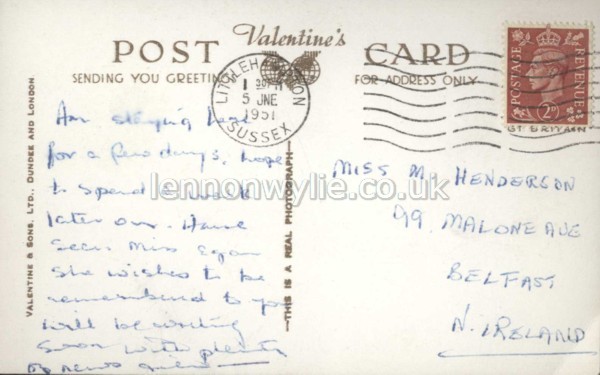 POST Valentine's CARD
SENDING YOU GREETING
FOR ADDRESS ONLY
LITTLEHAMPTON
1 30 PM
5 JNE
1951
SUSSEX
POSTAGE REVENUE
2D
GT BRITAIN
VALENTINE & SONS. LTD., DUNDEE AND LONDON
THIS IS A REAL PHOTOGRAPH
Am staying here
for a few days, hope
to spend a week
later on. Have
seen Miss Egan
she wishes to be
remembered to you
will be writing
soon with plenty
of news
MISS M. HENDERSON
99 MALONE AVE
BELFAST
N. IRELAND
lennonwylie.co.uk